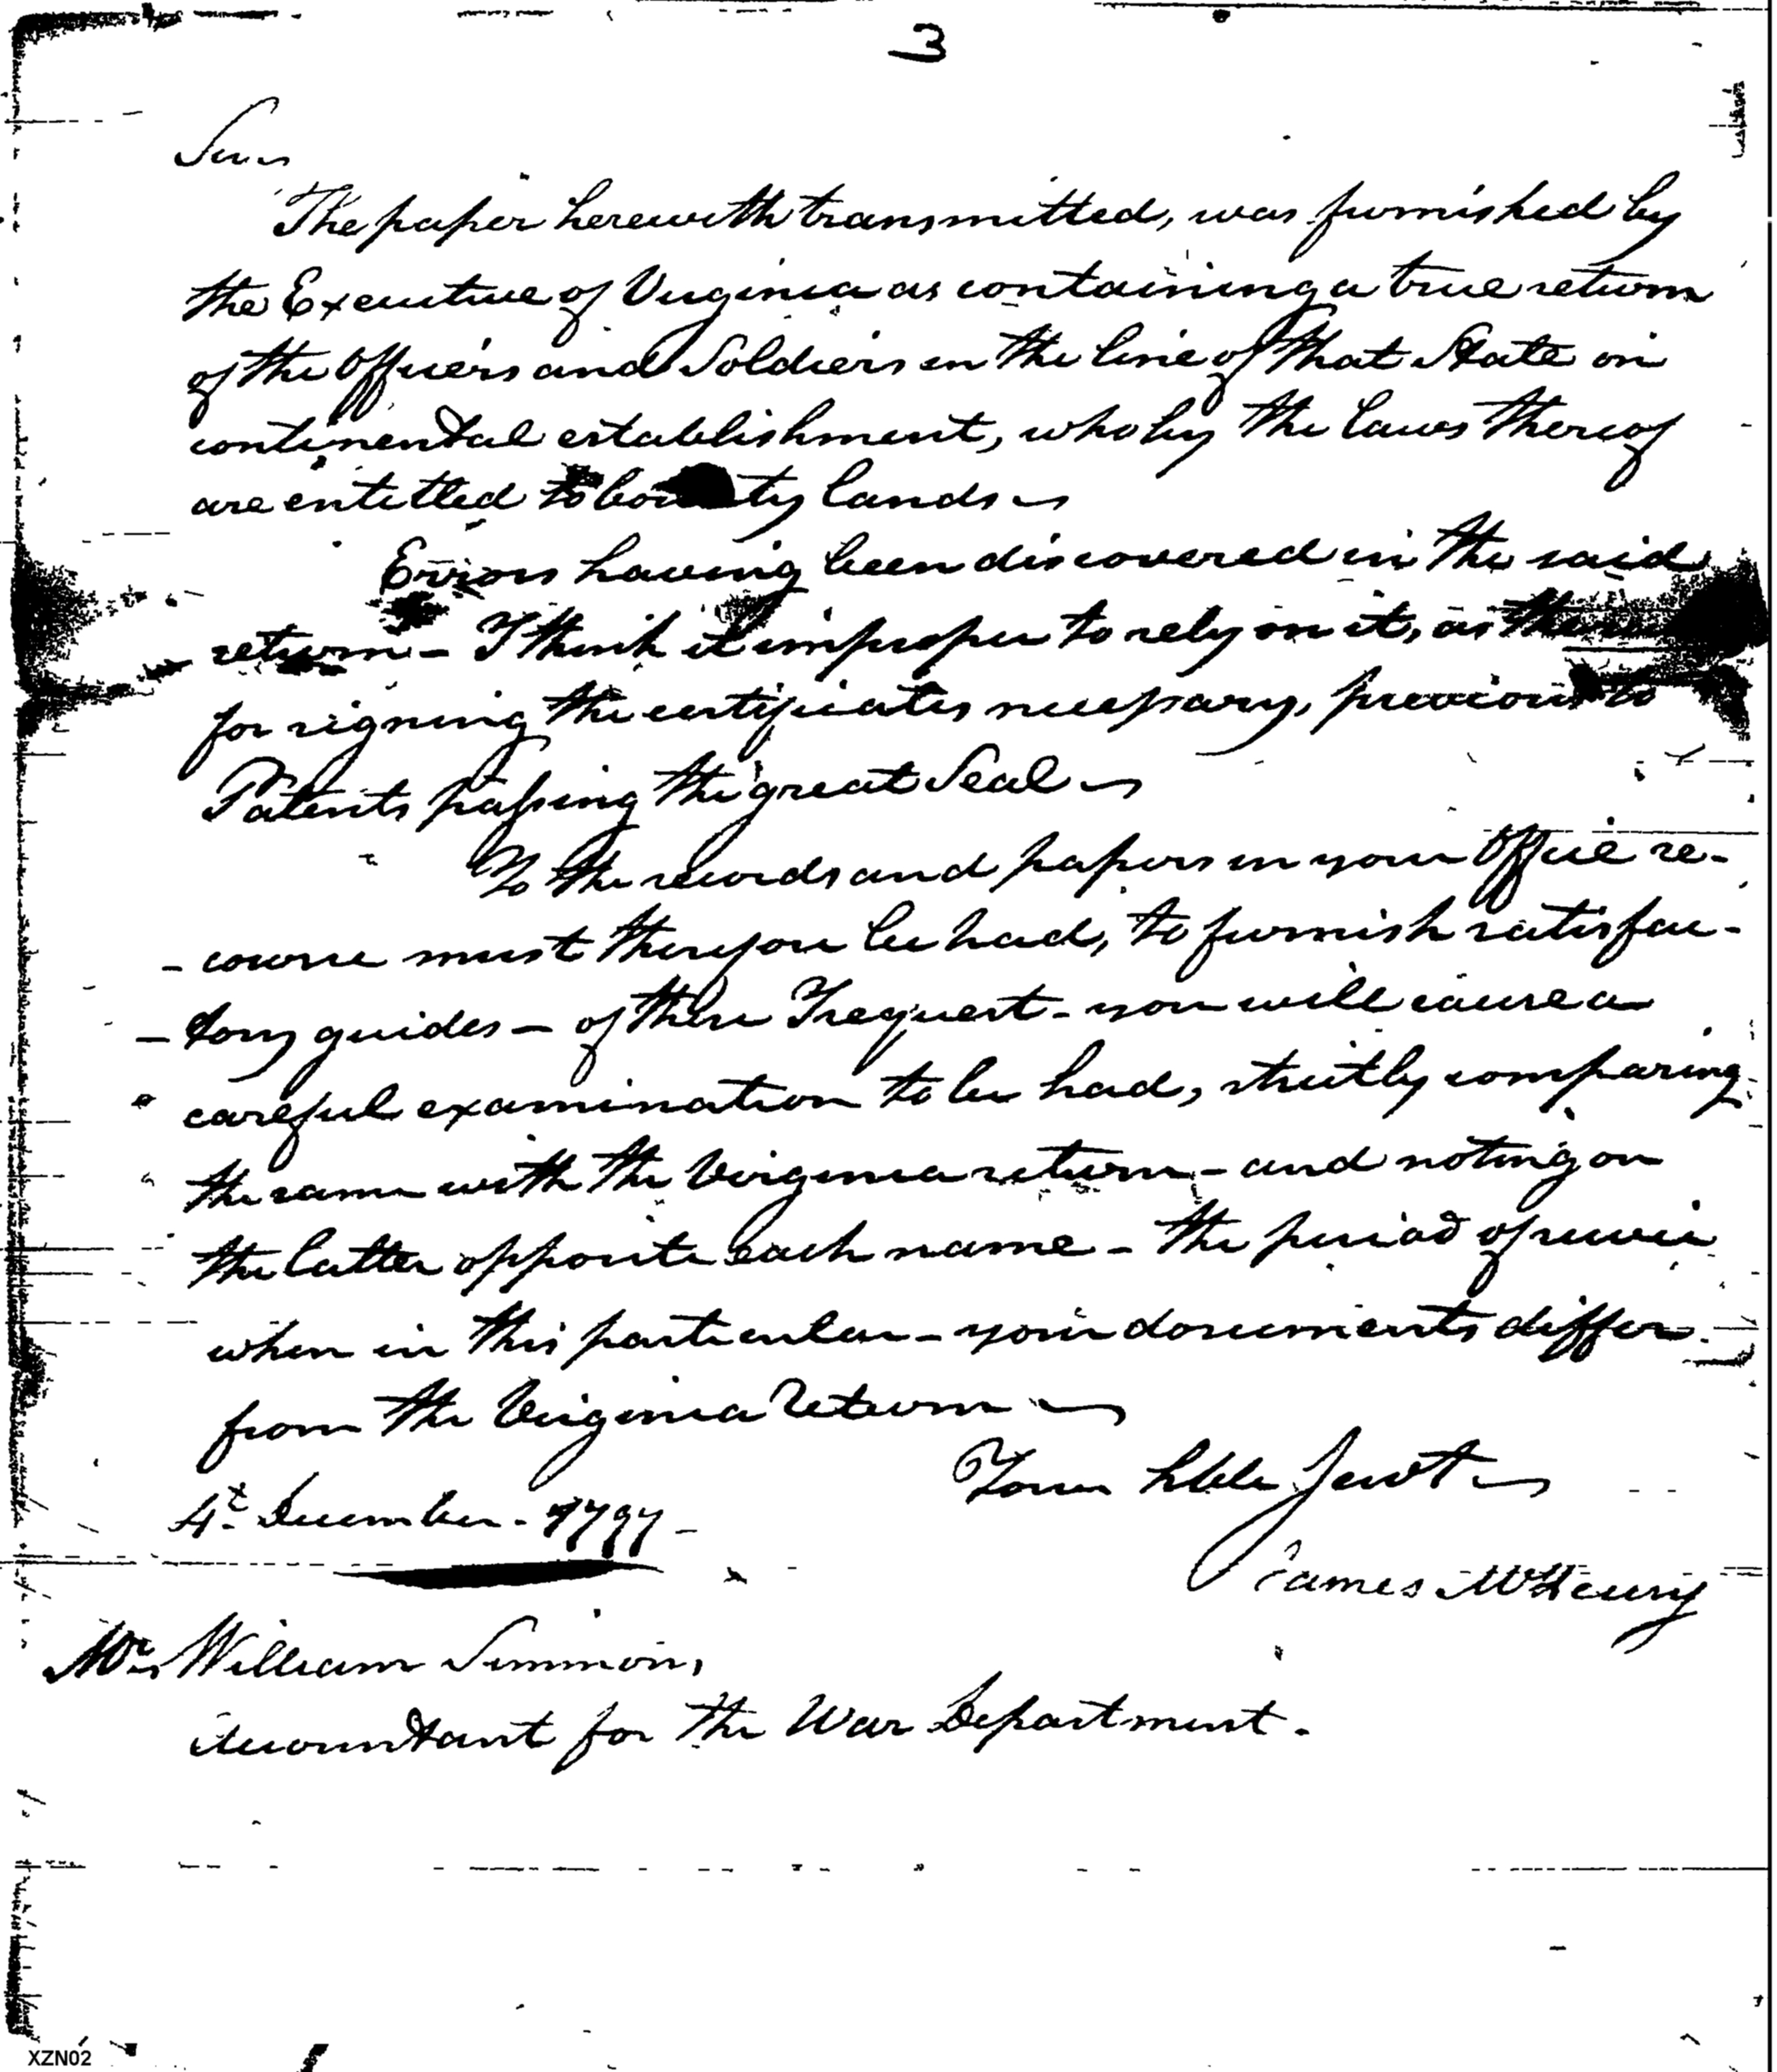 3
Sir
The paper herewith transmitted, was furnished by
the Executive of Virginia as containing a true return
of the Officers and Soldiers in the line of that State on
continental establishment, who by the laws thereof
are entitled to bounty lands
Errors having been discovered in the said
return - I think it improper to rely on it, as the
for signing the certificates necessary, previous to
Patents passing the great Seal
To the records and papers in your Office re-
-course must therefore be had, to furnish satisfac-
-tory guides - of these I request - you will cause a
careful examination to be had, strictly comparing
the same with the Virginia return - and noting on
the latter opposite each name - the period of service
when in this particular - your documents differ
from the Virginia Return
Your hble Servt
4t December - 1797 -
James McHenry
Mr William Simmons,
Accountant for the War Department.
XZN02